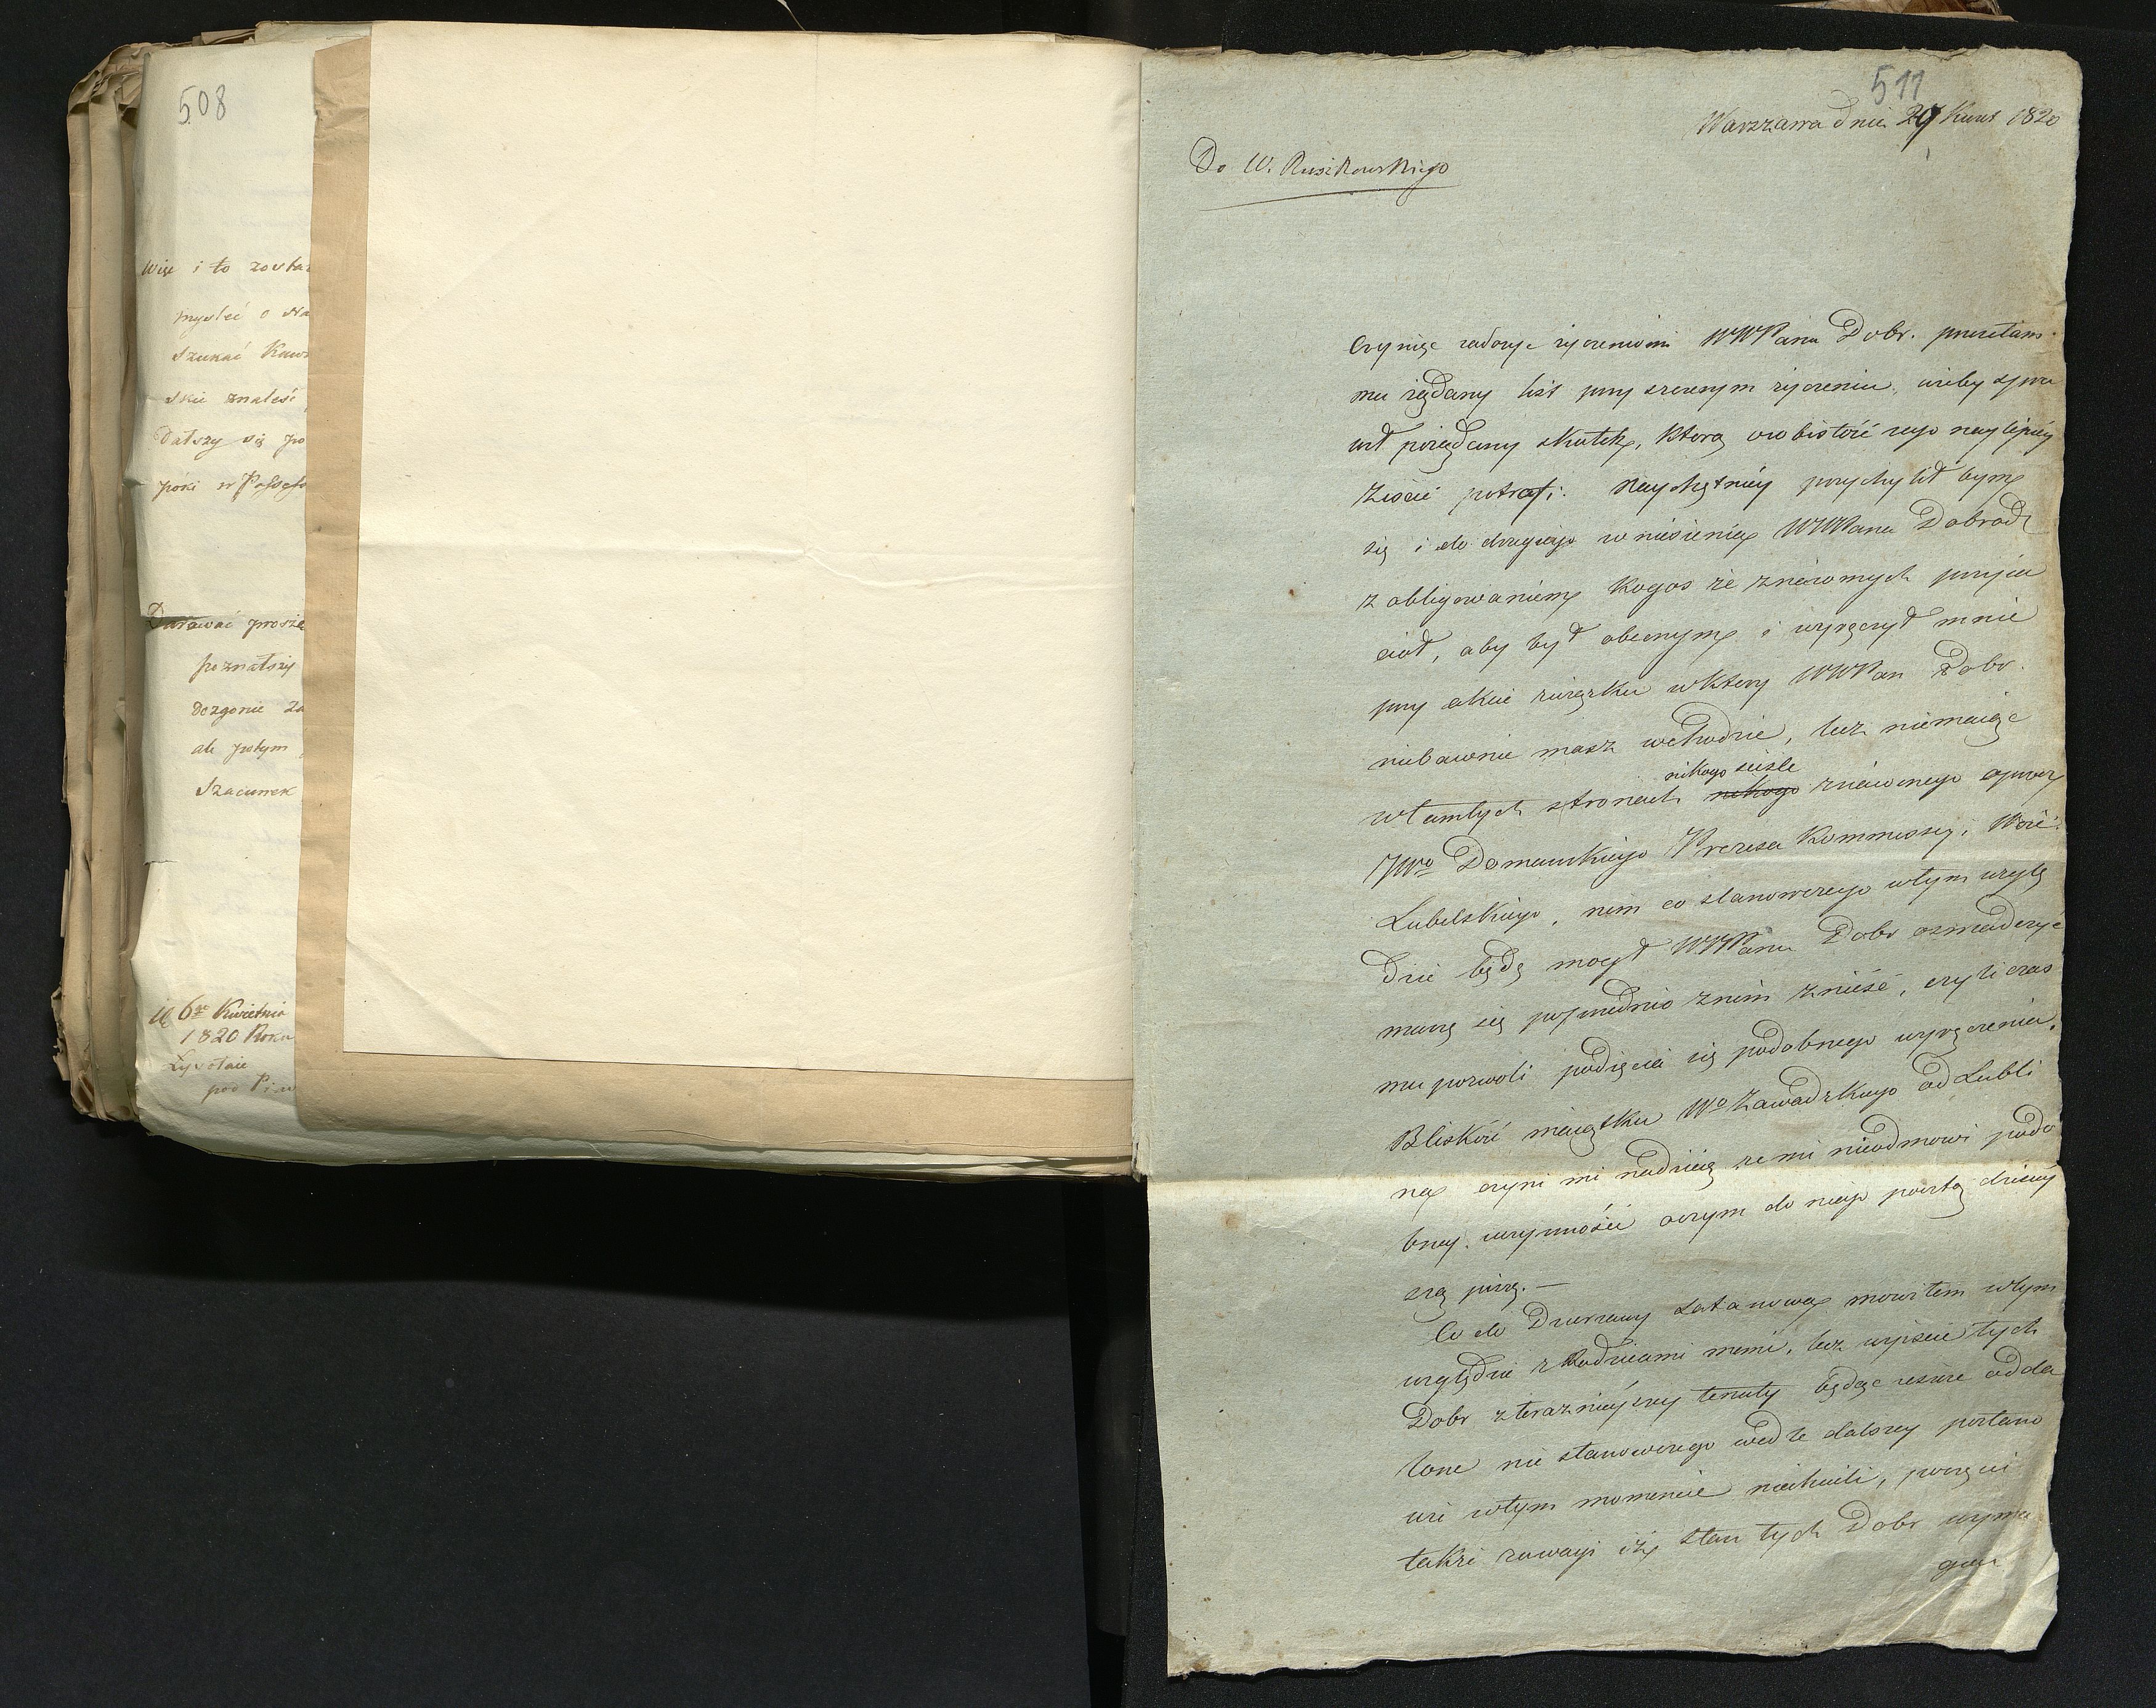 508
Więc i to zosta
myśleć o Na
Szukać Kaw
skie znaleść
Dalszy się po
póki w Possess
Darować proszę
poznalszy
dozgonie za
ale potym
Szacunek
6go Kwietnia
1820 Roku
pod Piw
511
Warszawa dnia 29 Kwiet 1820
Do W. Ruszkowskiego
Czyniąc zadosyć życzeniom WWPana Dobr. przesłam
mu żądany list przy szczerym życzeniu, ażeby spra
wił pożądany skutek, którą osobistość iego naylepiéy
ziścić potrafi. Naychętniéy przychylił bym
się i do drugiego wniesienia WWPana Dobrodz
z obligowaniem kogoś ze znaiomych przyia
ciół, aby był obecnym i wyręczył mnie
przy akcie związku w który WWPan Dobr.
niebawnie masz wchodzić, lecz niemaiąc
w tamtych stronach nikogo ściśle znaiomego oprócz
JWo Domanskiego Prezesa Kommissyi Woie:
Lubelskiego, nim co stanowczego w tym wzglę
dzie będę mógł WWPanu Dobr oświadczyć
muszę się poprzednio z nim znieść, czyli czas
mu pozwoli podięcia się podobnego wyręczenia.
Bliskość maiątku Wo Zawadzkiego od Lubli
na czyni mi nadzieię że mi nieodmowi podo
bney uczynności o czym do niego pocztą dzisiéy
szą piszę. —
Co do Dzierżawy Łatanowa mówiłem w tym
względzie z Rodzicami memi, lecz wyiście tych
Dobr z teraznieyszey tenuty będąc ieszcze odda
lone nic stanowczego wedle dalszey postano
wić w tym momencie niechcieli, powzięci
także uwagi iż stan tych Dobr wyma
ga